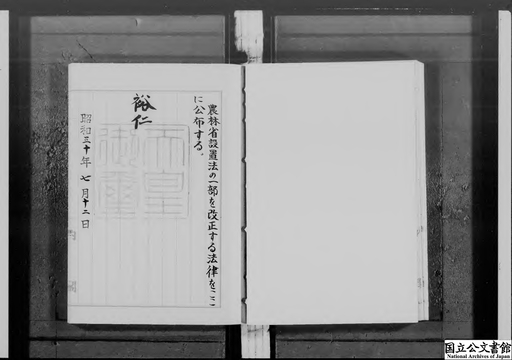 農林省設置法の一部を改正する法律をここ
に公布する。
裕仁
天皇
御璽
昭和三十年七月十二日
国立公文書館
National Archives of Japan